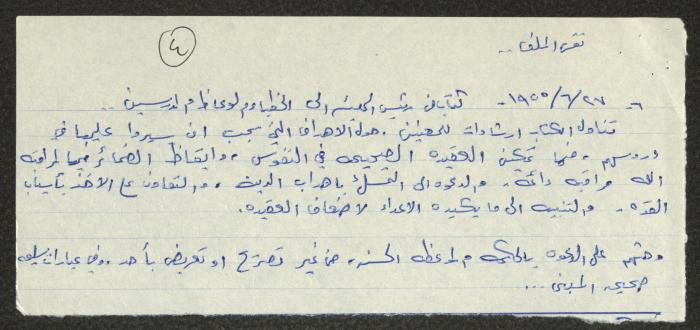 ٤
نفس الملف ..
٦- ٢٧/٦/١٩٥٥ - كتاب من رئيس الهيئة الى الخطباء والوعاظ والمدرسين ..
تناول الكتاب ارشادات للمعنيين . حول الاهداف التي يجب ان يسيروا عليها في
دروسهم ، منها تمكين العقيده الصحيحه في النفوس ، وايقاظ الضمائر فيها لمراقبة
الله مراقبه دائمة . والدعوه الى التمسك باهداب الدين ، والتعاون على الاخذ باسباب
القوه . والتنبيه الى ما يكيده الاعداء لاضعاف العقيده .
وحثهم على الدعوه بالحكمه والموعظه الحسنه ، من غير تصريح او تعريض بأحد ، وفي عبارات سليمه
صحيحة المبنى ...